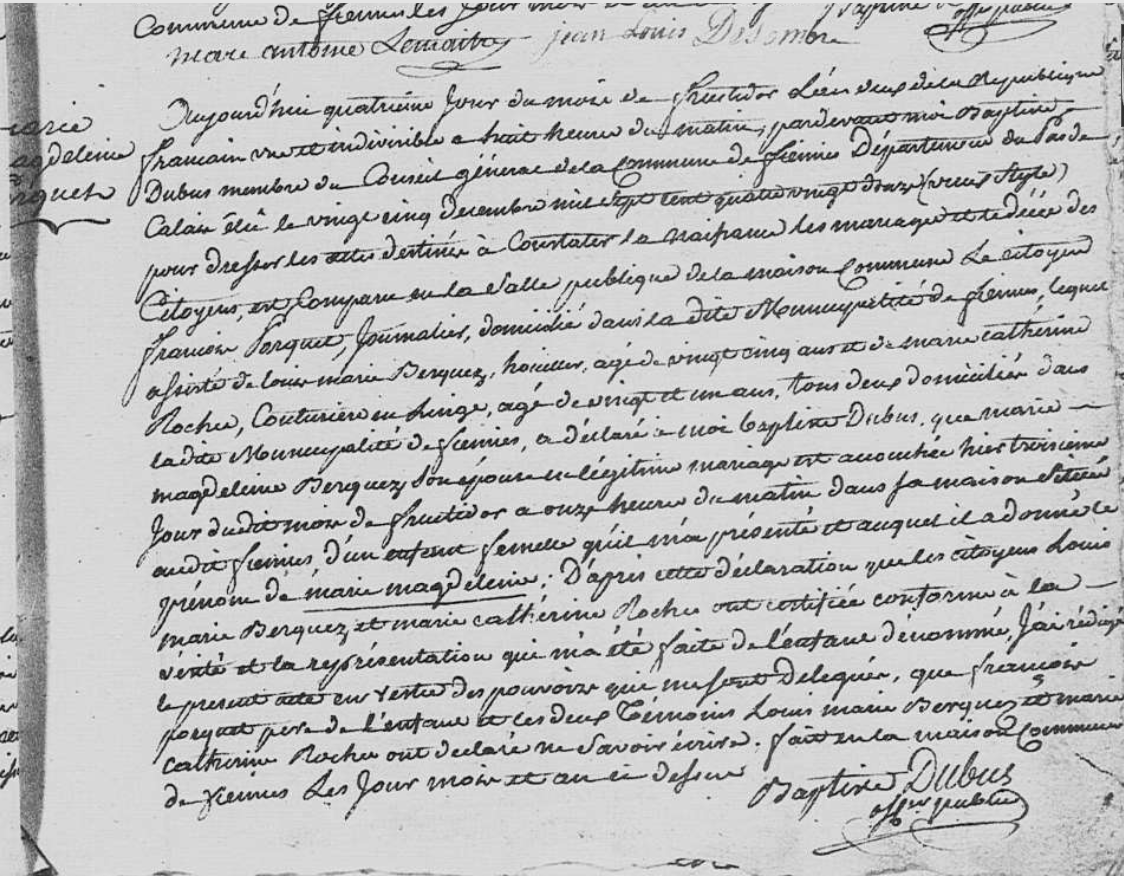 Commune de fiennes les Jour mois et an
marc antoine Lemaitre jean Louis Delombre
offr public
marie
magdeleine
porquet
Aujourd'hui quatrieme Jour du mois de fructidor L'an deux de la Republique
francaise une et indivisible a huit heure du matin, pardevant moi Baptiste
Dubus membre du Conseil général de la Commune de fiennes Département du Pas de
Calais élu le vingt cinq decembre mil sept cent quatre vingt douze (vieux Style)
pour dresser les actes destinés à Constater la naissance les mariages et le décès des
Citoyens, est Comparu en la Salle publique de la maison Commune Le citoyen
francois Porquet, Journalier, domicilié dans la dite Municipalité de fiennes, lequel
assisté de louis marie Berquez, houiller, agé de vingt cinq ans et de marie cathérine
Roche, Couturiere en linge, agé de vingt et un ans, tous deux domiciliés dans
la dite Municipalité de fiennes, a déclaré à moi baptiste Dubus, que marie
magdeleine Berquez son épouse en légitime mariage est accouchée hier troisieme
Jour dudit mois de fructidor a onze heure du matin dans sa maison Située
audit fiennes, d'un enfant femelle qu'il m'a présenté et auquel il a donné le
prénom de marie magdeleine ; D'après cette déclaration que les citoyens Louis
marie Berquez et marie cathérine Roche ont certifiée conforme à la
vérité et la représentation qui m'a été faite de l'enfant dénommé, J'ai rédigé
le present acte en vertu des pouvoirs qui me sont delegués, que francois
porquet pere de l'enfant et les deux Témoins Louis marie Berquez et marie
catherine Roche ont declaré ne Savoir écrire. fait en la maison Commune
de fiennes Les Jour mois et an ci dessus
Baptiste Dubus
offer public